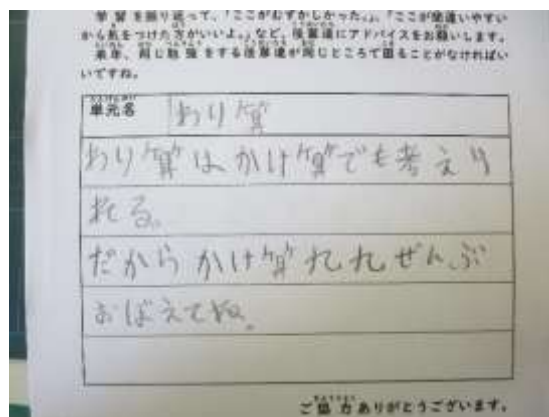 学習を振り返って、「ここがむずかしかった。」、「ここが間違いやすい
から気をつけた方がいいよ。」など、後輩達にアドバイスをお願いします。
来年、同じ勉強をする後輩達が同じところで困ることがなければい
いですね。
単元名 わり算
わり算はかけ算でも考えら
れる。
だからかけ算九九ぜんぶ
おぼえてね。
ご協力ありがとうございます。